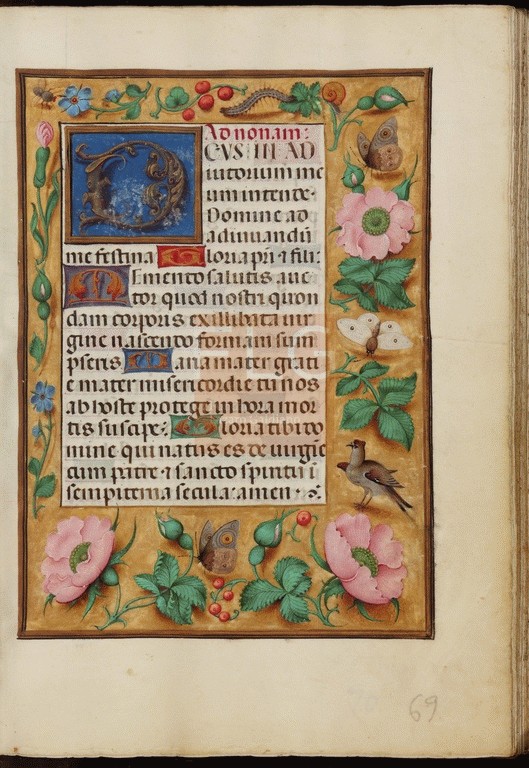 Ad nonam:
DEVS IN AD
iutorium me
um intende.
Domine ad
adiuuandū
me festina Gloria pri ⁊ fili:
Memento salutis auc
tor quod nostri quon
dam corporis ex illibata uir
gine nascendo formam sum
pseris Maria mater grati
e mater misericordie tu nos
ab hoste protege in hora mor
tis suscipe: Gloria tibi do
mine qui natus es de uirgīe
cum patre ⁊ sancto spiritu ī
sempiterna secula: amen
69